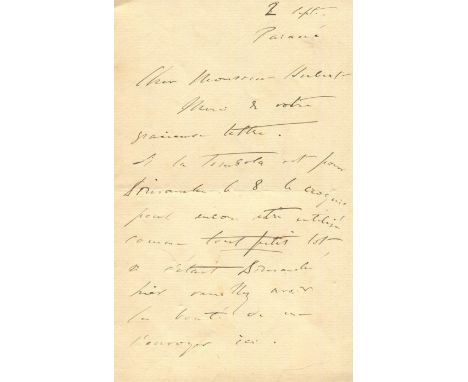 2 Sept.
Paramé
Cher Monsieur Hubert
Merci de votre
gracieuse lettre.
Si la Tombola est pour
Dimanche le 8 le croquis
peut encore être utilisé
comme tout petit lot
si c'était Dimanche
hier veuillez avoir
la bonté de me
l'envoyer ici.